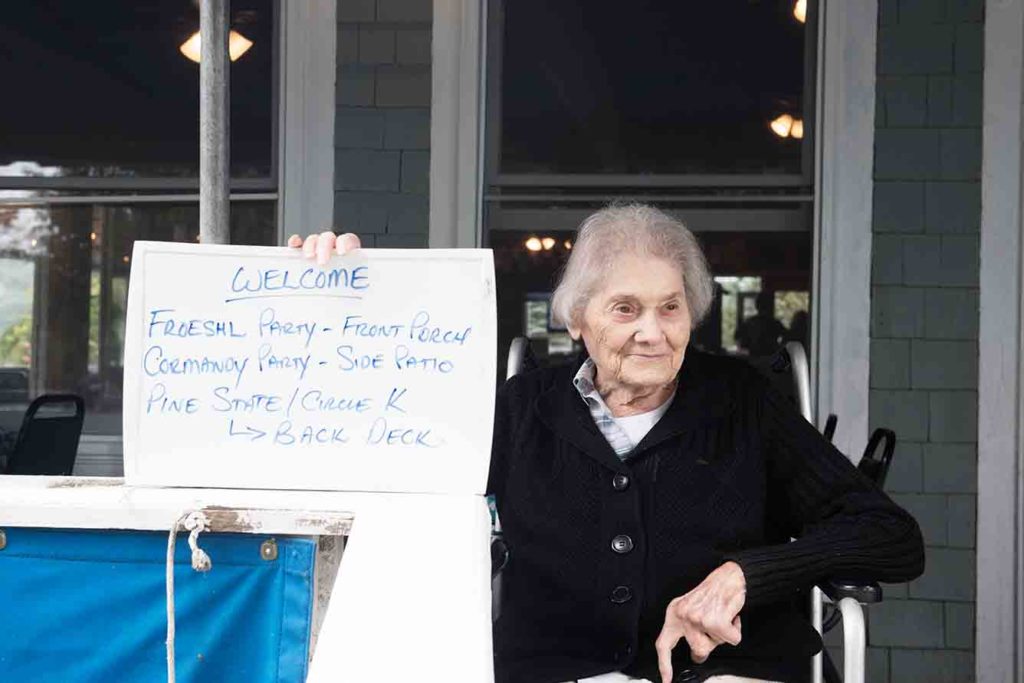 WELCOME
FROESHL PARTY - FRONT PORCH
CORMANDY PARTY - SIDE PATIO
PINE STATE / CIRCLE K
↳ BACK DECK